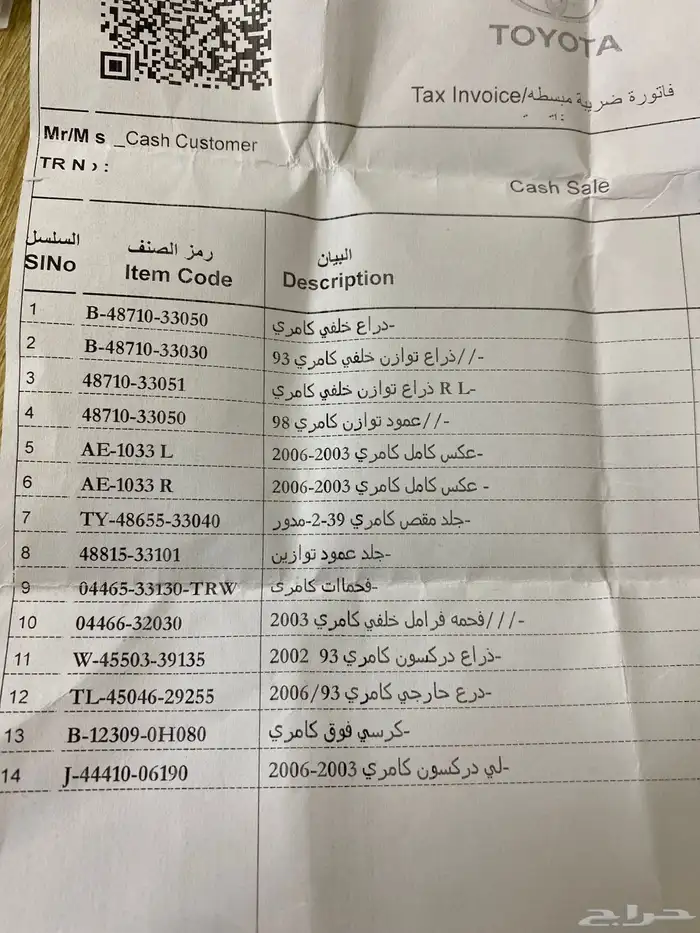 TOYOTA
Tax Invoice/فاتورة ضريبة مبسطه
Mr/M s _Cash Customer
TR N :
Cash Sale
السلسل رمز الصنف البيان
SlNo Item Code Description
1 B-48710-33050 دراع خلفي كامري-
2 B-48710-33030 ذراع توازن خلفي كامري 93//-
3 48710-33051 ذراع توازن خلفي كامري R L-
4 48710-33050 عمود توازن كامري 98//-
5 AE-1033 L عكس كامل كامري 2003-2006-
6 AE-1033 R عكس كامل كامري 2003-2006-
7 TY-48655-33040 جلد مقص كامري 39-2-مدور-
8 48815-33101 جلد عمود توازين-
9 04465-33130-TRW فحماات كامرى-
10 04466-32030 فحمه فرامل خلفي كامري 2003///-
11 W-45503-39135 ذراع دركسون كامري 93 2002-
12 TL-45046-29255 درع حارجي كامري 2006/93-
13 B-12309-0H080 كرسي فوق كامري-
14 J-44410-06190 لي دركسون كامري 2003-2006-
حراج